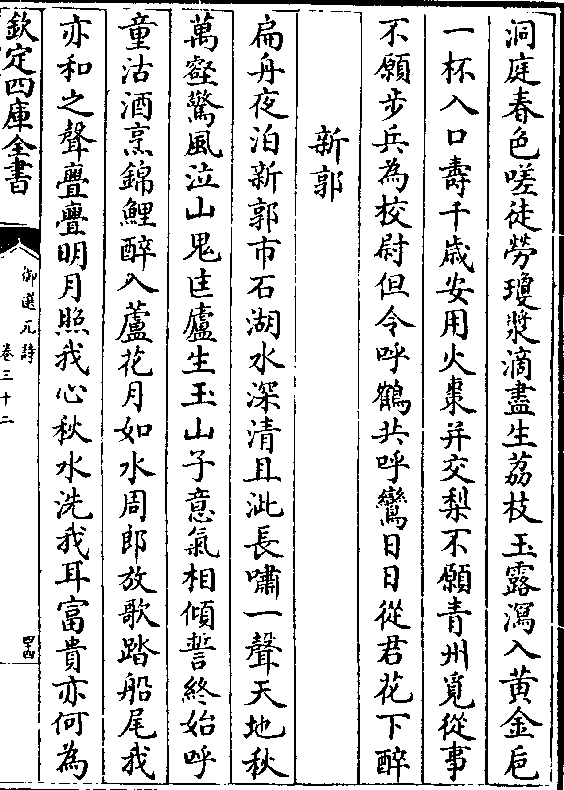 洞庭春色嗟徒勞瓊漿滴盡生荔枝玉露瀉入黄金巵
一杯入口壽千歳安用火棗并交梨不願青州覓從事
不願步兵為校尉但令呼鶴共呼鸞日日從君花下醉
新郭
扁舟夜泊新郭市石湖水深清且泚長嘯一聲天地秋
萬壑驚風泣山鬼匡廬生玉山子意氣相傾誓終始呼
童沽酒烹錦鯉醉入蘆花月如水周郎放歌踏船尾我
亦和之聲亹亹明月照我心秋水洗我耳富貴亦何為
欽定四庫全書
御選元詩
卷三十二
四十四